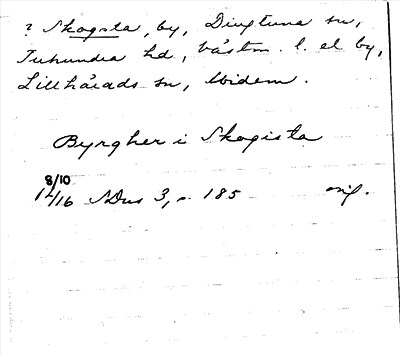 ? Skogsta, by, Dingtuna sn,
Tuhundra hd, Västm. l. el by,
Lillhärads sn, ibidem.
Byrgher i Skogista
8/10
14/16 SDns 3, s. 185 orig.